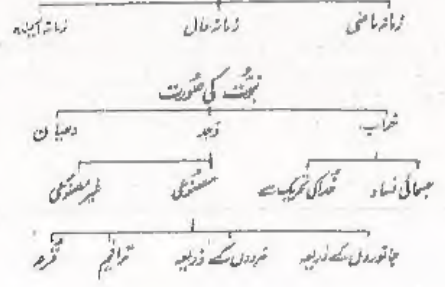 زمانہ ماضی زمانہ حال زمانہ آیندہ
نبوّت کی صورت
خواب وجد دھیان
جسمانی فساد خدا کی تحریک سے مصنوعی غیر مصنوعی
جانوروں کے ذریعہ مردوں کے ذریعہ قرعہ